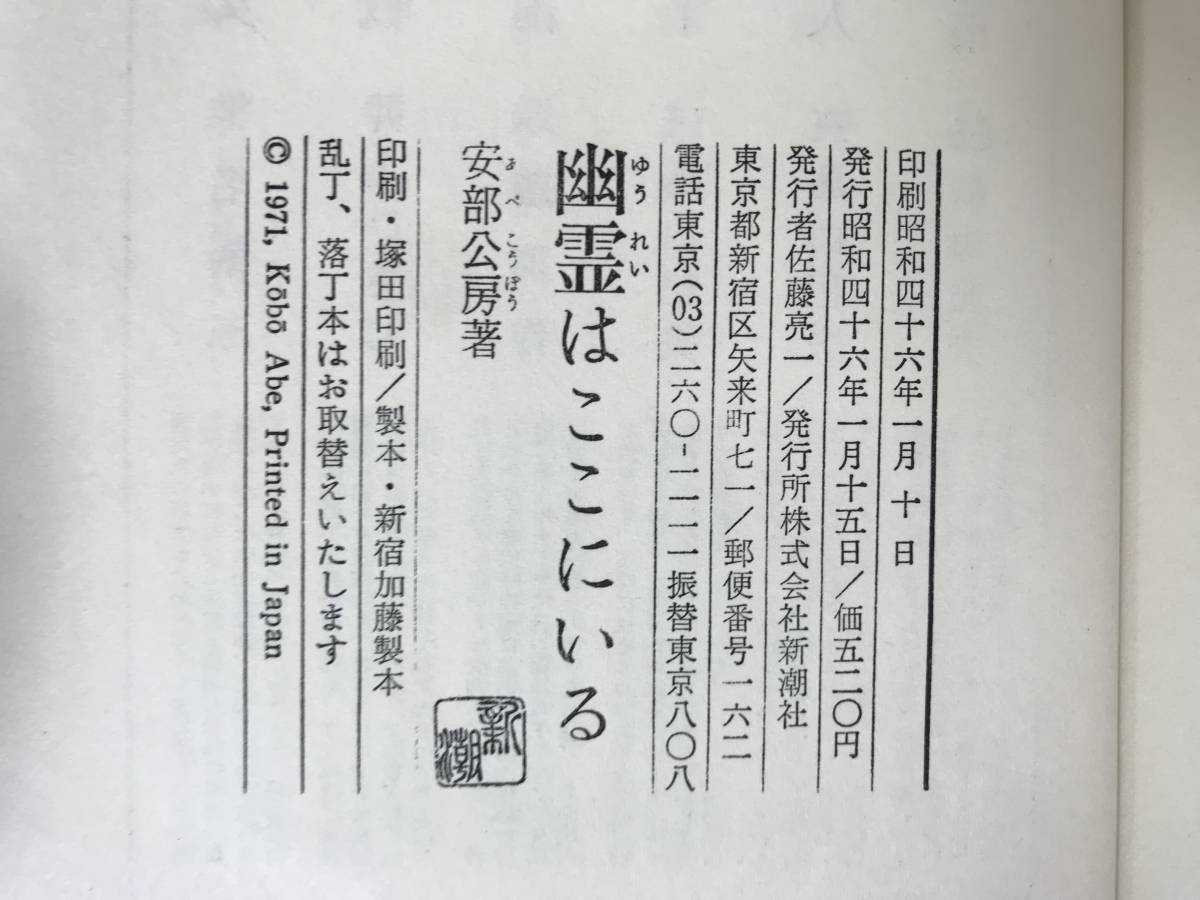 印刷昭和四十六年一月十日
発行昭和四十六年一月十五日/価五二〇円
発行者佐藤亮一/発行所株式会社新潮社
東京都新宿区矢来町七一/郵便番号一六二
電話東京(03)二六〇-一一一一振替東京八〇八
幽霊はここにいる
ゆうれい
安部公房著
あべこうぼう
新潮
印刷・塚田印刷/製本・新宿加藤製本
乱丁、落丁本はお取替えいたします
© 1971, Kōbō Abe, Printed in Japan